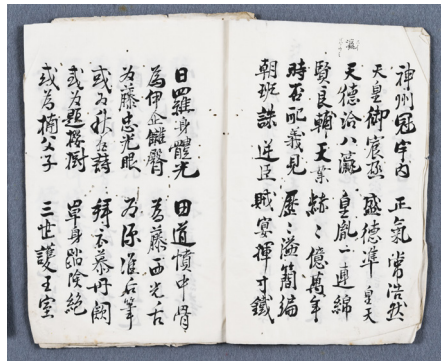 神州冠宇内 正氣常浩然
天皇御宸極 盛德準皇天
天德洽八瀛 皇胤一連綿
賢良輔天業 赫々億萬年
時否配義見 歷々溢簡編
朝班誅逆臣 賊宴揮寸鐵
日羅身體光 田道憤中骨
為伊企儺臀 為藤西光舌
為藤忠光眼 為源准后筆
或為 詩 拜 慕丹闕
或為題櫻 單身踏險絶
或為楠父子 三世護王室